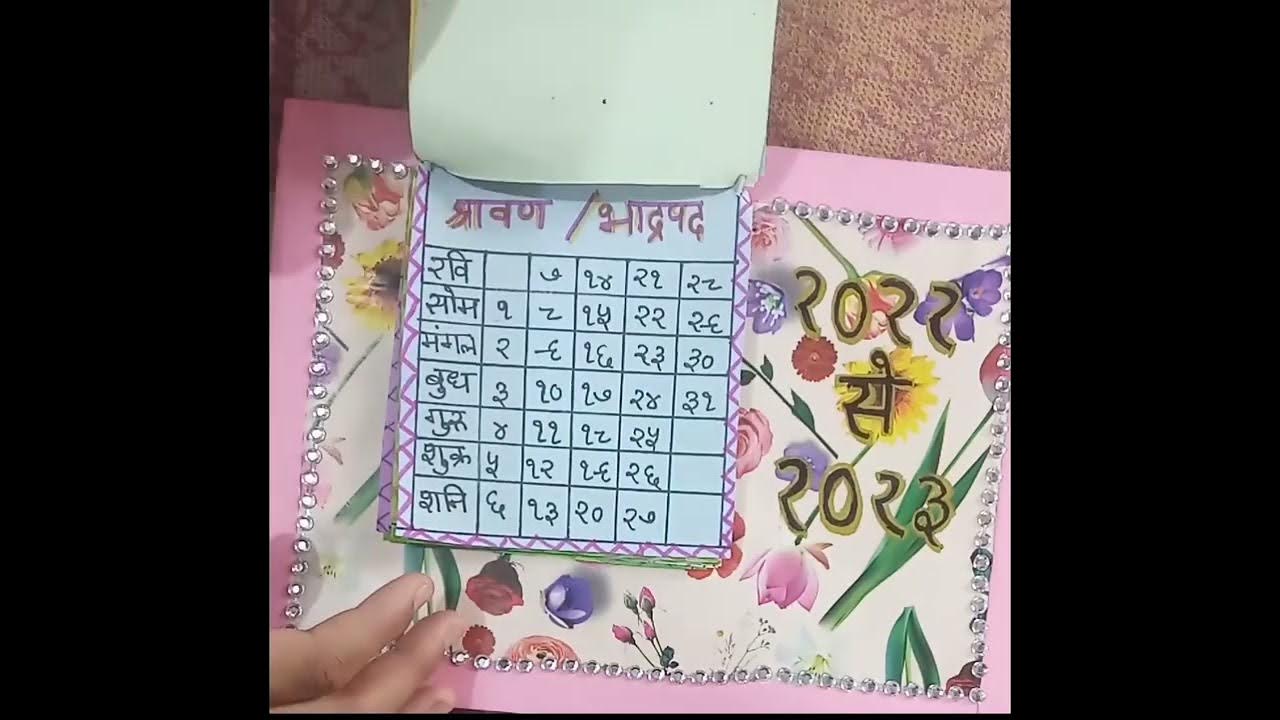 श्रावण / भाद्रपद
रवि ७ १४ २१ २८
सोम १ ८ १५ २२ २९
मंगल २ ९ १६ २३ ३०
बुध ३ १० १७ २४ ३१
गुरु ४ ११ १८ २५
शुक्र ५ १२ १९ २६
शनि ६ १३ २० २७
२०२२
से
२०२३